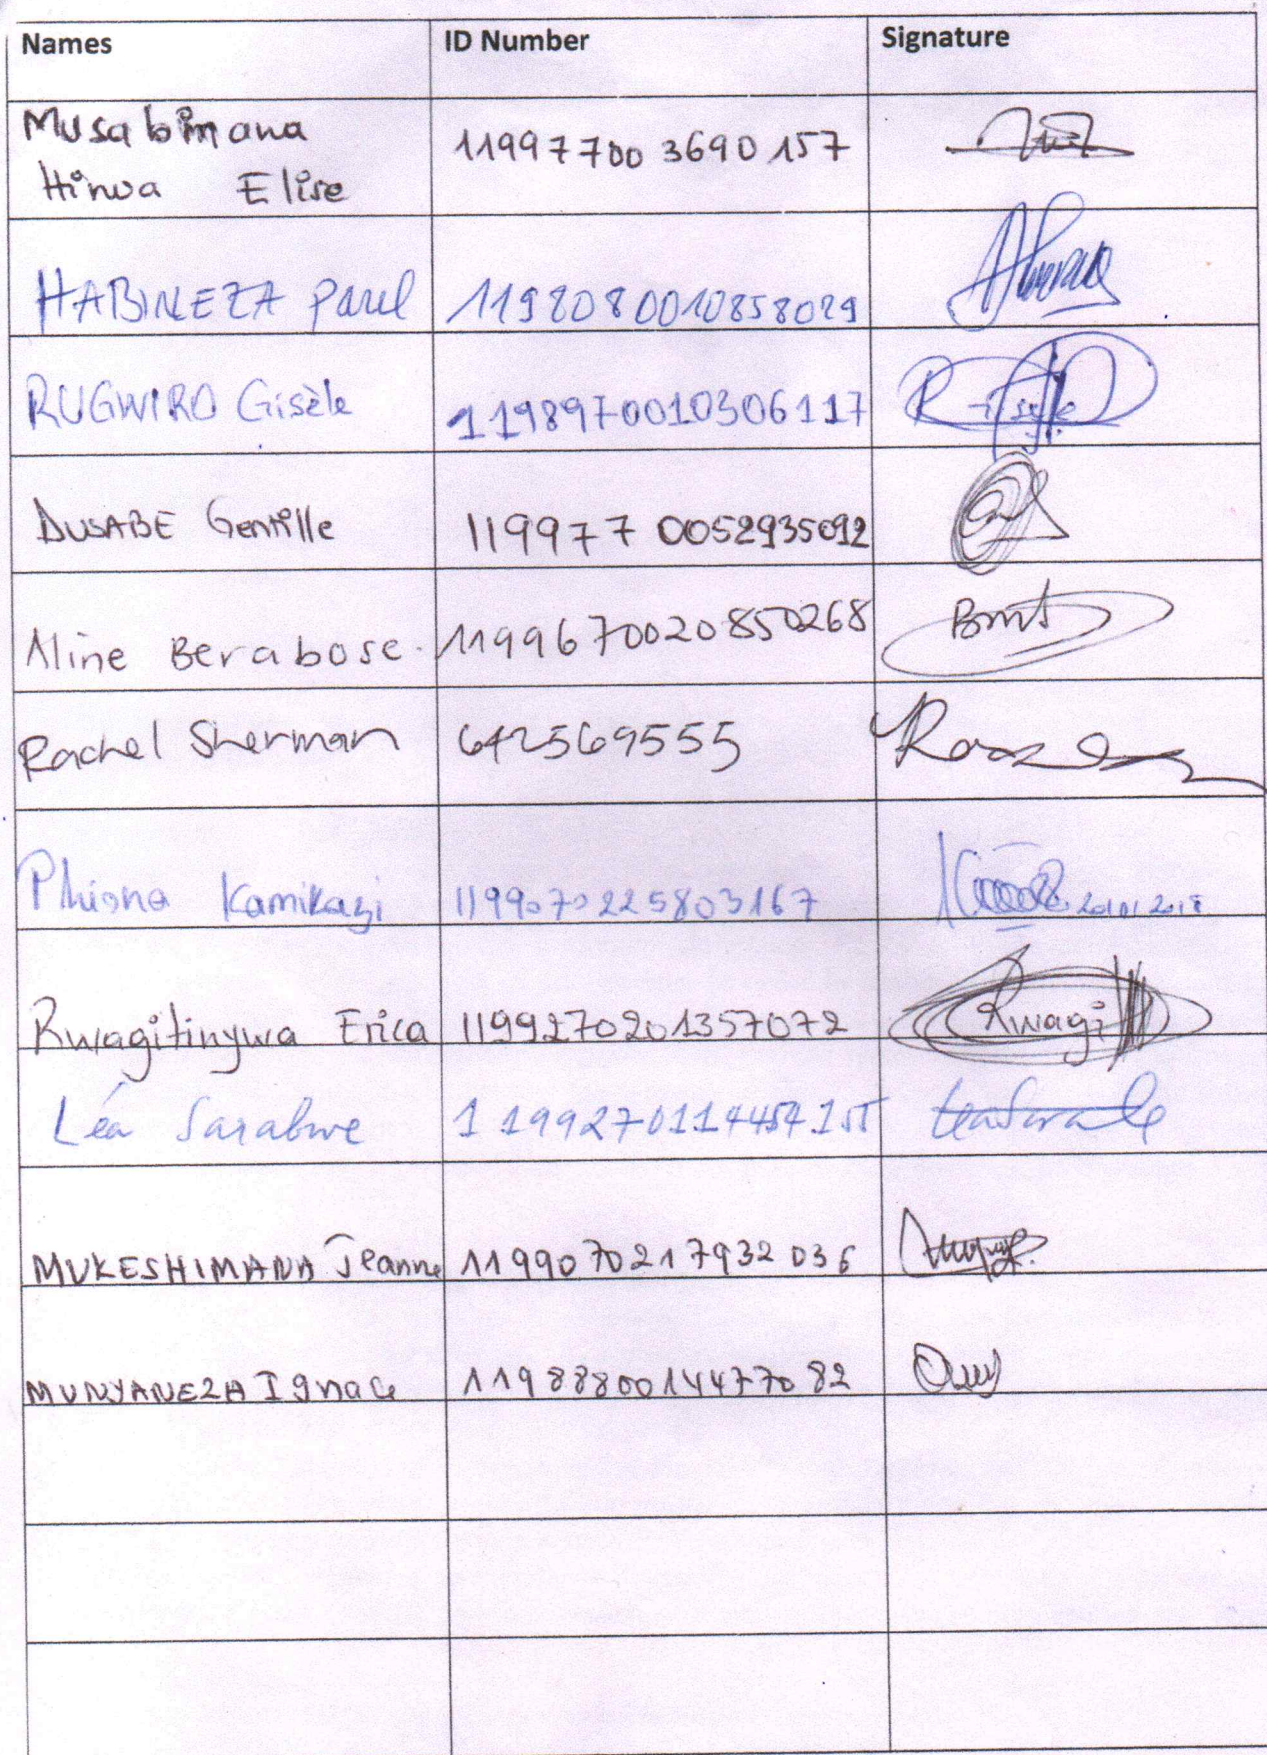 Names ID Number Signature
Musabimana
Hirwa Elise 119977003690157
HABINEZA Paul 1198080010858029
RUGWIRO Gisèle 1198970010306117
DUSABE Gentille 1199770052935092
Aline Berabose. 1199670020850268 Bmt
Rachel Sherman 642569555
Phiona Kamikazi 1199070225803167
Rwagitinywa Erica 1199270201357072 Rwagi
Léa Sarabwe 1199270114454155
MUKESHIMANA Jeanne 1199070217932036
MUNYANEZA Ignace 1198880014477082